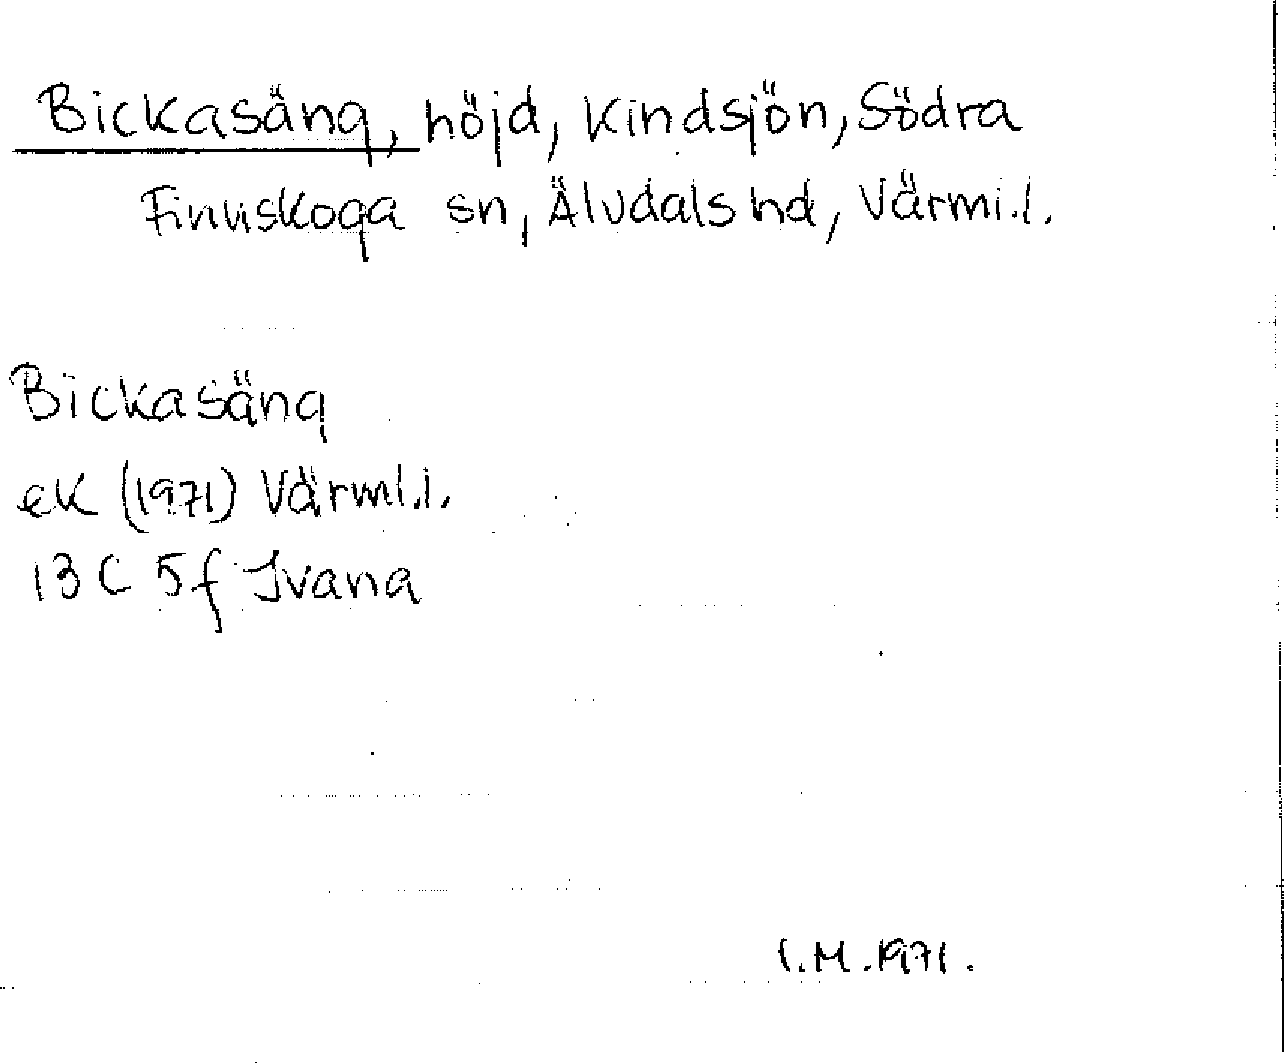 Bickasäng, höjd, Kindsjön, Södra
Finnskoga sn, Älvdals hd, Värml.l.
Bickasäng
ek (1971) Värml.l.
13 C 5f Ivana
I.M.1971.